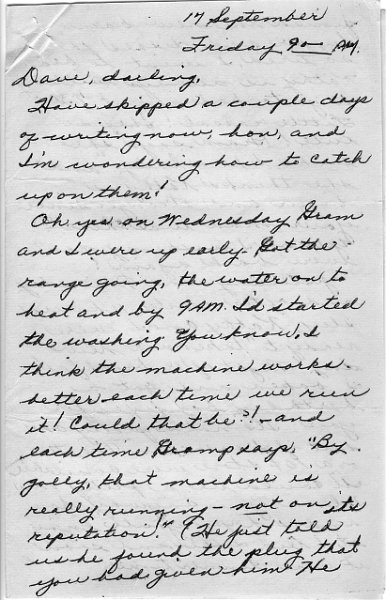 17 September
Friday 9:00 AM.
Dave, darling,
Have skipped a couple days
of writing now, hon, and
I'm wondering how to catch
up on them!
Oh yes on Wednesday Gram
and I were up early. Got the
range going, the water on to
heat and by 9AM. I'd started
the washing. You know, I
think the machine works
better each time we run
it! Could that be?! - and
each time Gramp says, "By
golly, that machine is
really running - not on its
reputation!" (He just told
us he found the plug that
you had given him. He